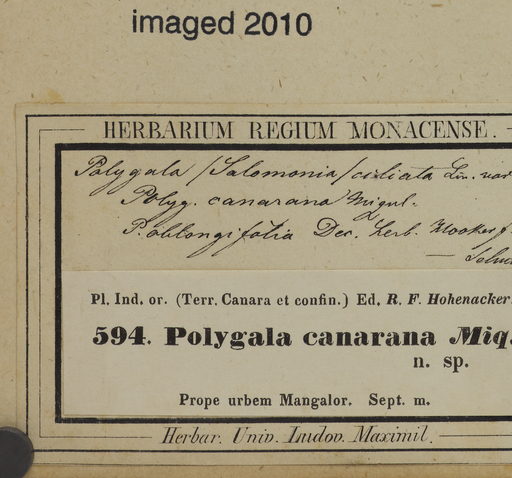 imaged 2010
HERBARIUM REGIUM MONACENSE.
Polygala /Salomonia/ ciliata Lin. var
Polyg. canarana Miqul.
P. oblongifolia Dec. herb. Hooker f.
Pl. Ind. or. (Terr. Canara et confin.) Ed. R. F. Hohenacker.
594. Polygala canarana Miq.
n. sp.
Prope urbem Mangalor. Sept. m.
Herbar. Univ. Ludov. Maximil.